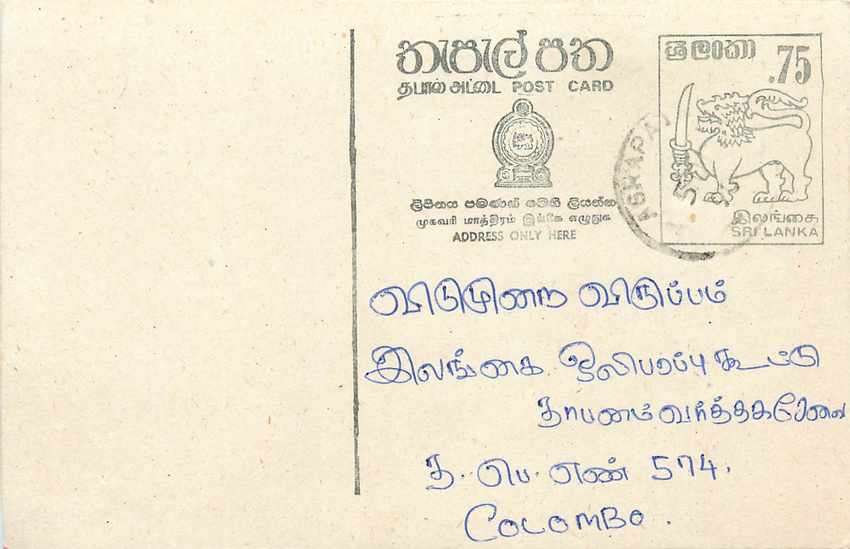 තැපැල් පත
தபால் அட்டை POST CARD
ලිපිනය පමණක් මෙහි ලියන්න
முகவரி மாத்திரம் இங்கே எழுதுக
ADDRESS ONLY HERE
ශ්‍රී ලංකා
.75
இலங்கை
SRI LANKA
விடுமுறை விருப்பம்
இலங்கை ஒலிபரப்பு கூட்டு
தாபனம் வர்த்தகசேவை
த. பெ. எண் 574,
COLOMBO.